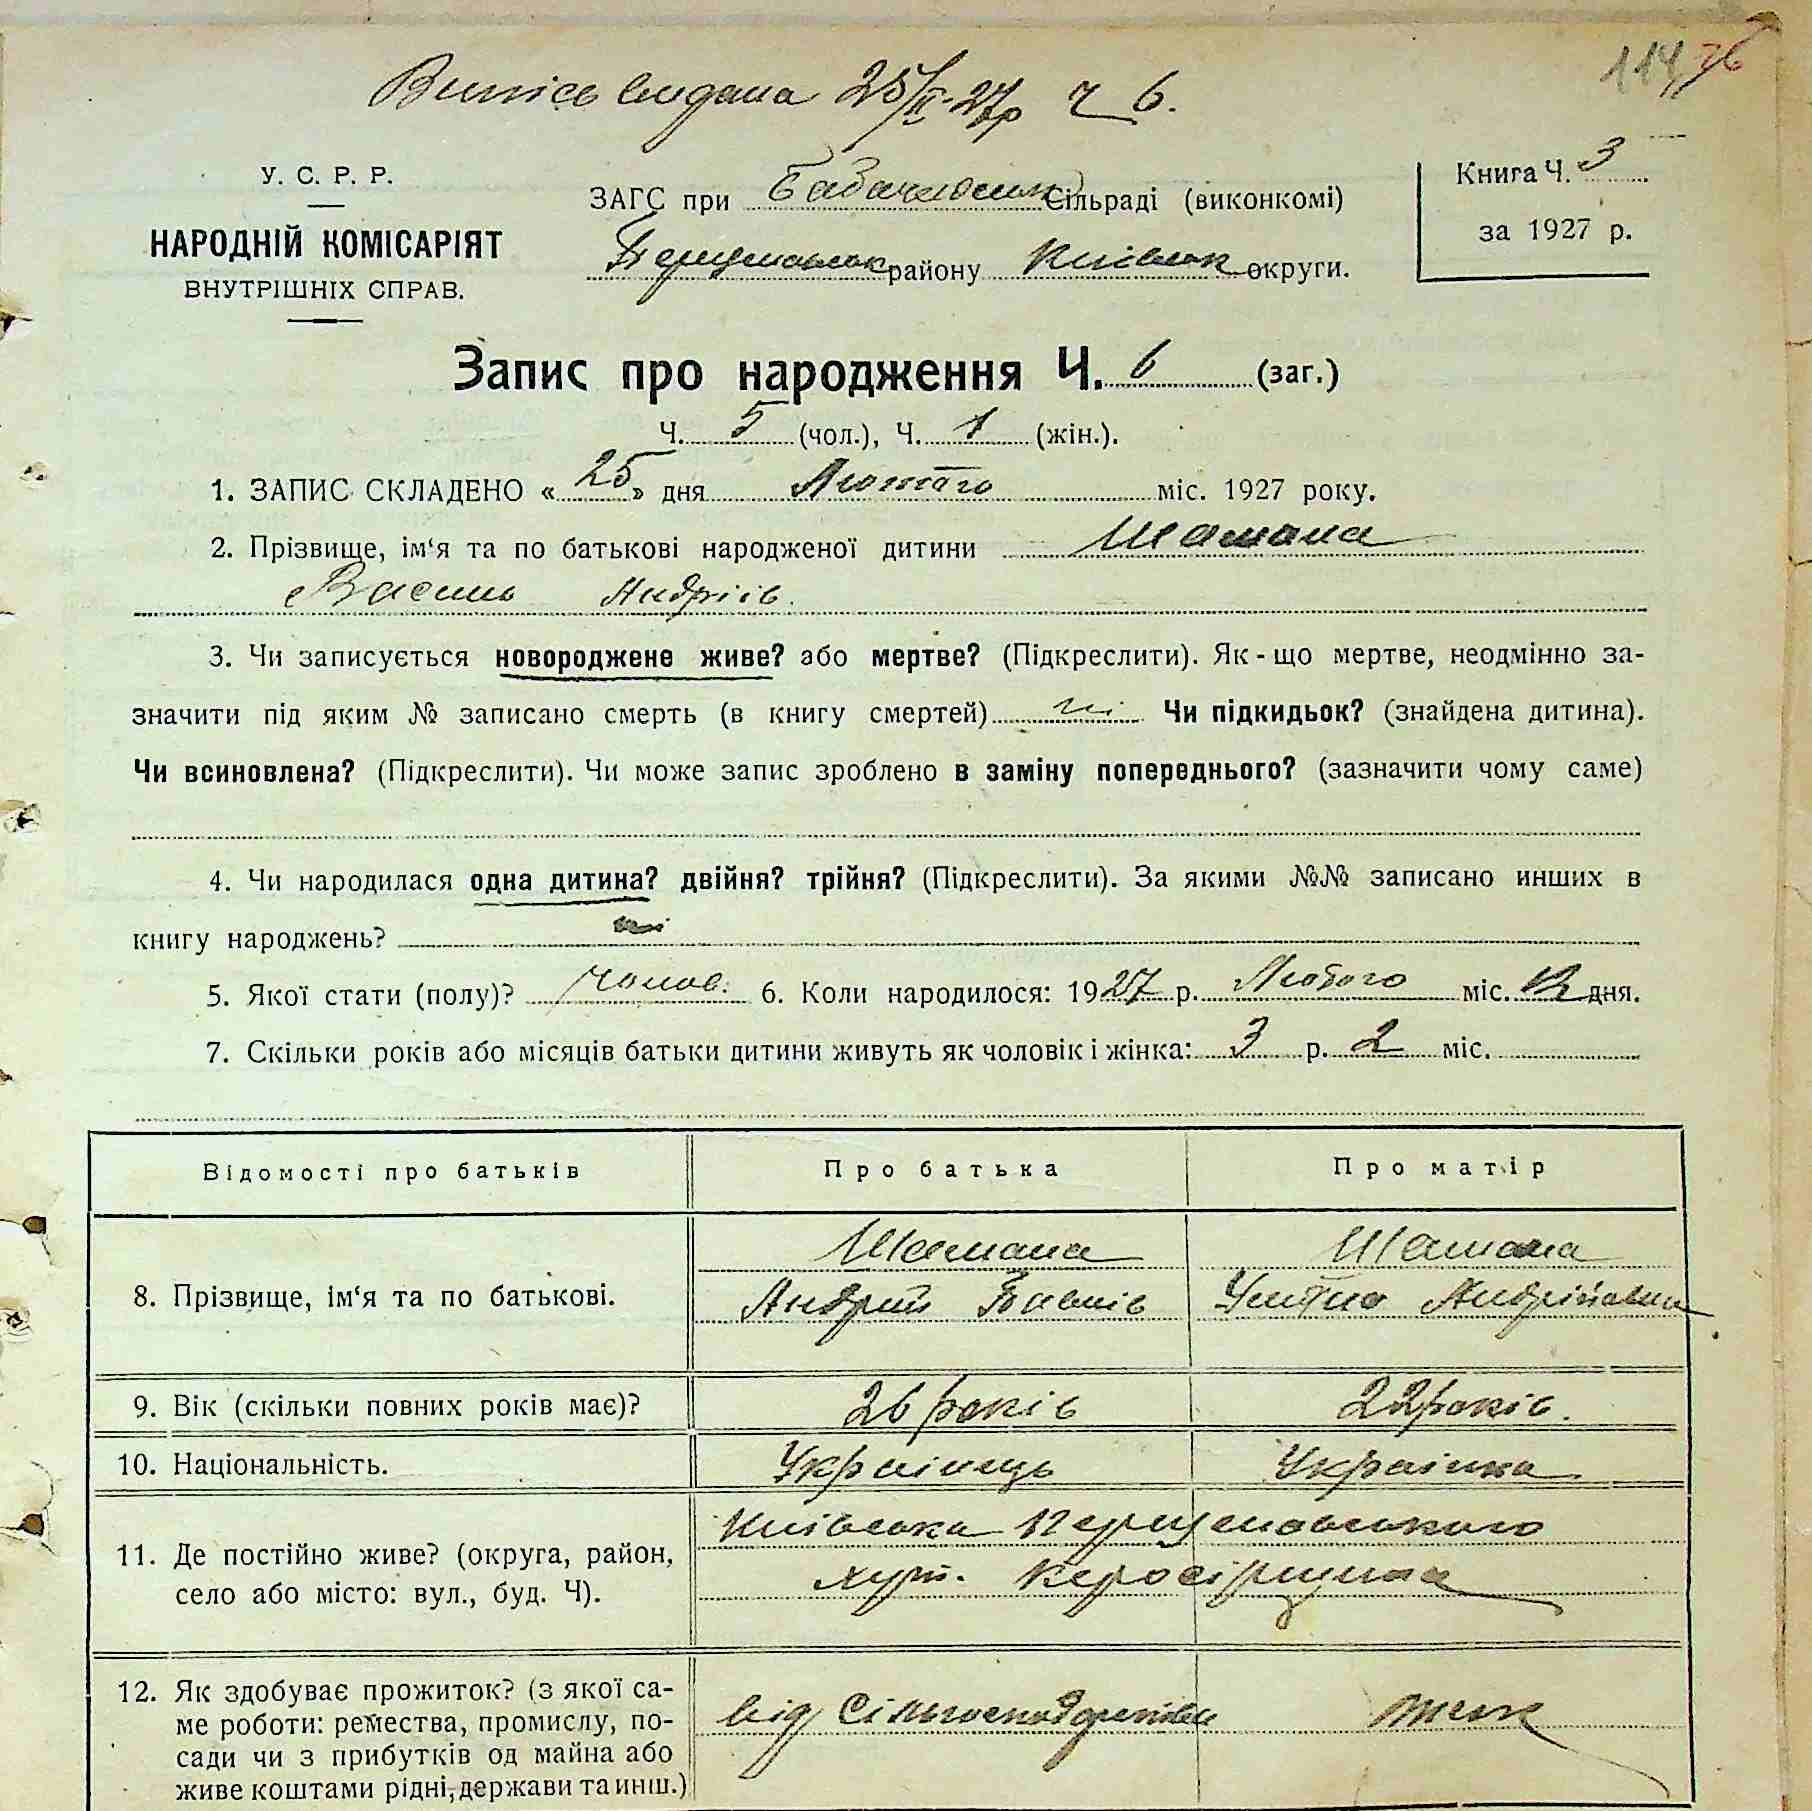 114 76
Випись видана 25/II-27р ч 6.
У. С. Р. Р.
НАРОДНІЙ КОМІСАРІЯТ
ВНУТРІШНІХ СПРАВ.
ЗАГС при Сільраді (виконкомі)
району Київськ округи.
Книга Ч. 3
за 1927 р.
Запис про народження Ч. 6 (заг.)
Ч. 5 (чол.), Ч. 1 (жін.).
1. ЗАПИС СКЛАДЕНО «25» дня Лютого міс. 1927 року.
2. Прізвище, ім‘я та по батькові народженої дитини Шамана
Василь Андріів.
3. Чи записується новороджене живе? або мертве? (Підкреслити). Як-що мертве, неодмінно за-
значити під яким № записано смерть (в книгу смертей) ні Чи підкидьок? (знайдена дитина).
Чи всиновлена? (Підкреслити). Чи може запис зроблено в заміну попереднього? (зазначити чому саме)
4. Чи народилася одна дитина? двійня? трійня? (Підкреслити). За якими №№ записано инших в
книгу народжень? ні
5. Якої стати (полу)? Чолов. 6. Коли народилося: 1927 р. Лютого міс. 12 дня.
7. Скільки років або місяців батьки дитини живуть як чоловік і жінка: 3 р. 2 міс.
Відомості про батьків
Про батька
Про матір
8. Прізвище, ім‘я та по батькові.
Шамана
Андрій Павлів
Шамана
Устина Андріївна
9. Вік (скільки повних років має)?
26 років
22 років.
10. Національність.
Українець
Українка
11. Де постійно живе? (округа, район,
село або місто: вул., буд. Ч).
Київська
хут.
12. Як здобуває прожиток? (з якої са-
ме роботи: ремества, промислу, по-
сади чи з прибутків од майна або
живе коштами рідні, держави та инш.)
від Сільгосподарства
теж